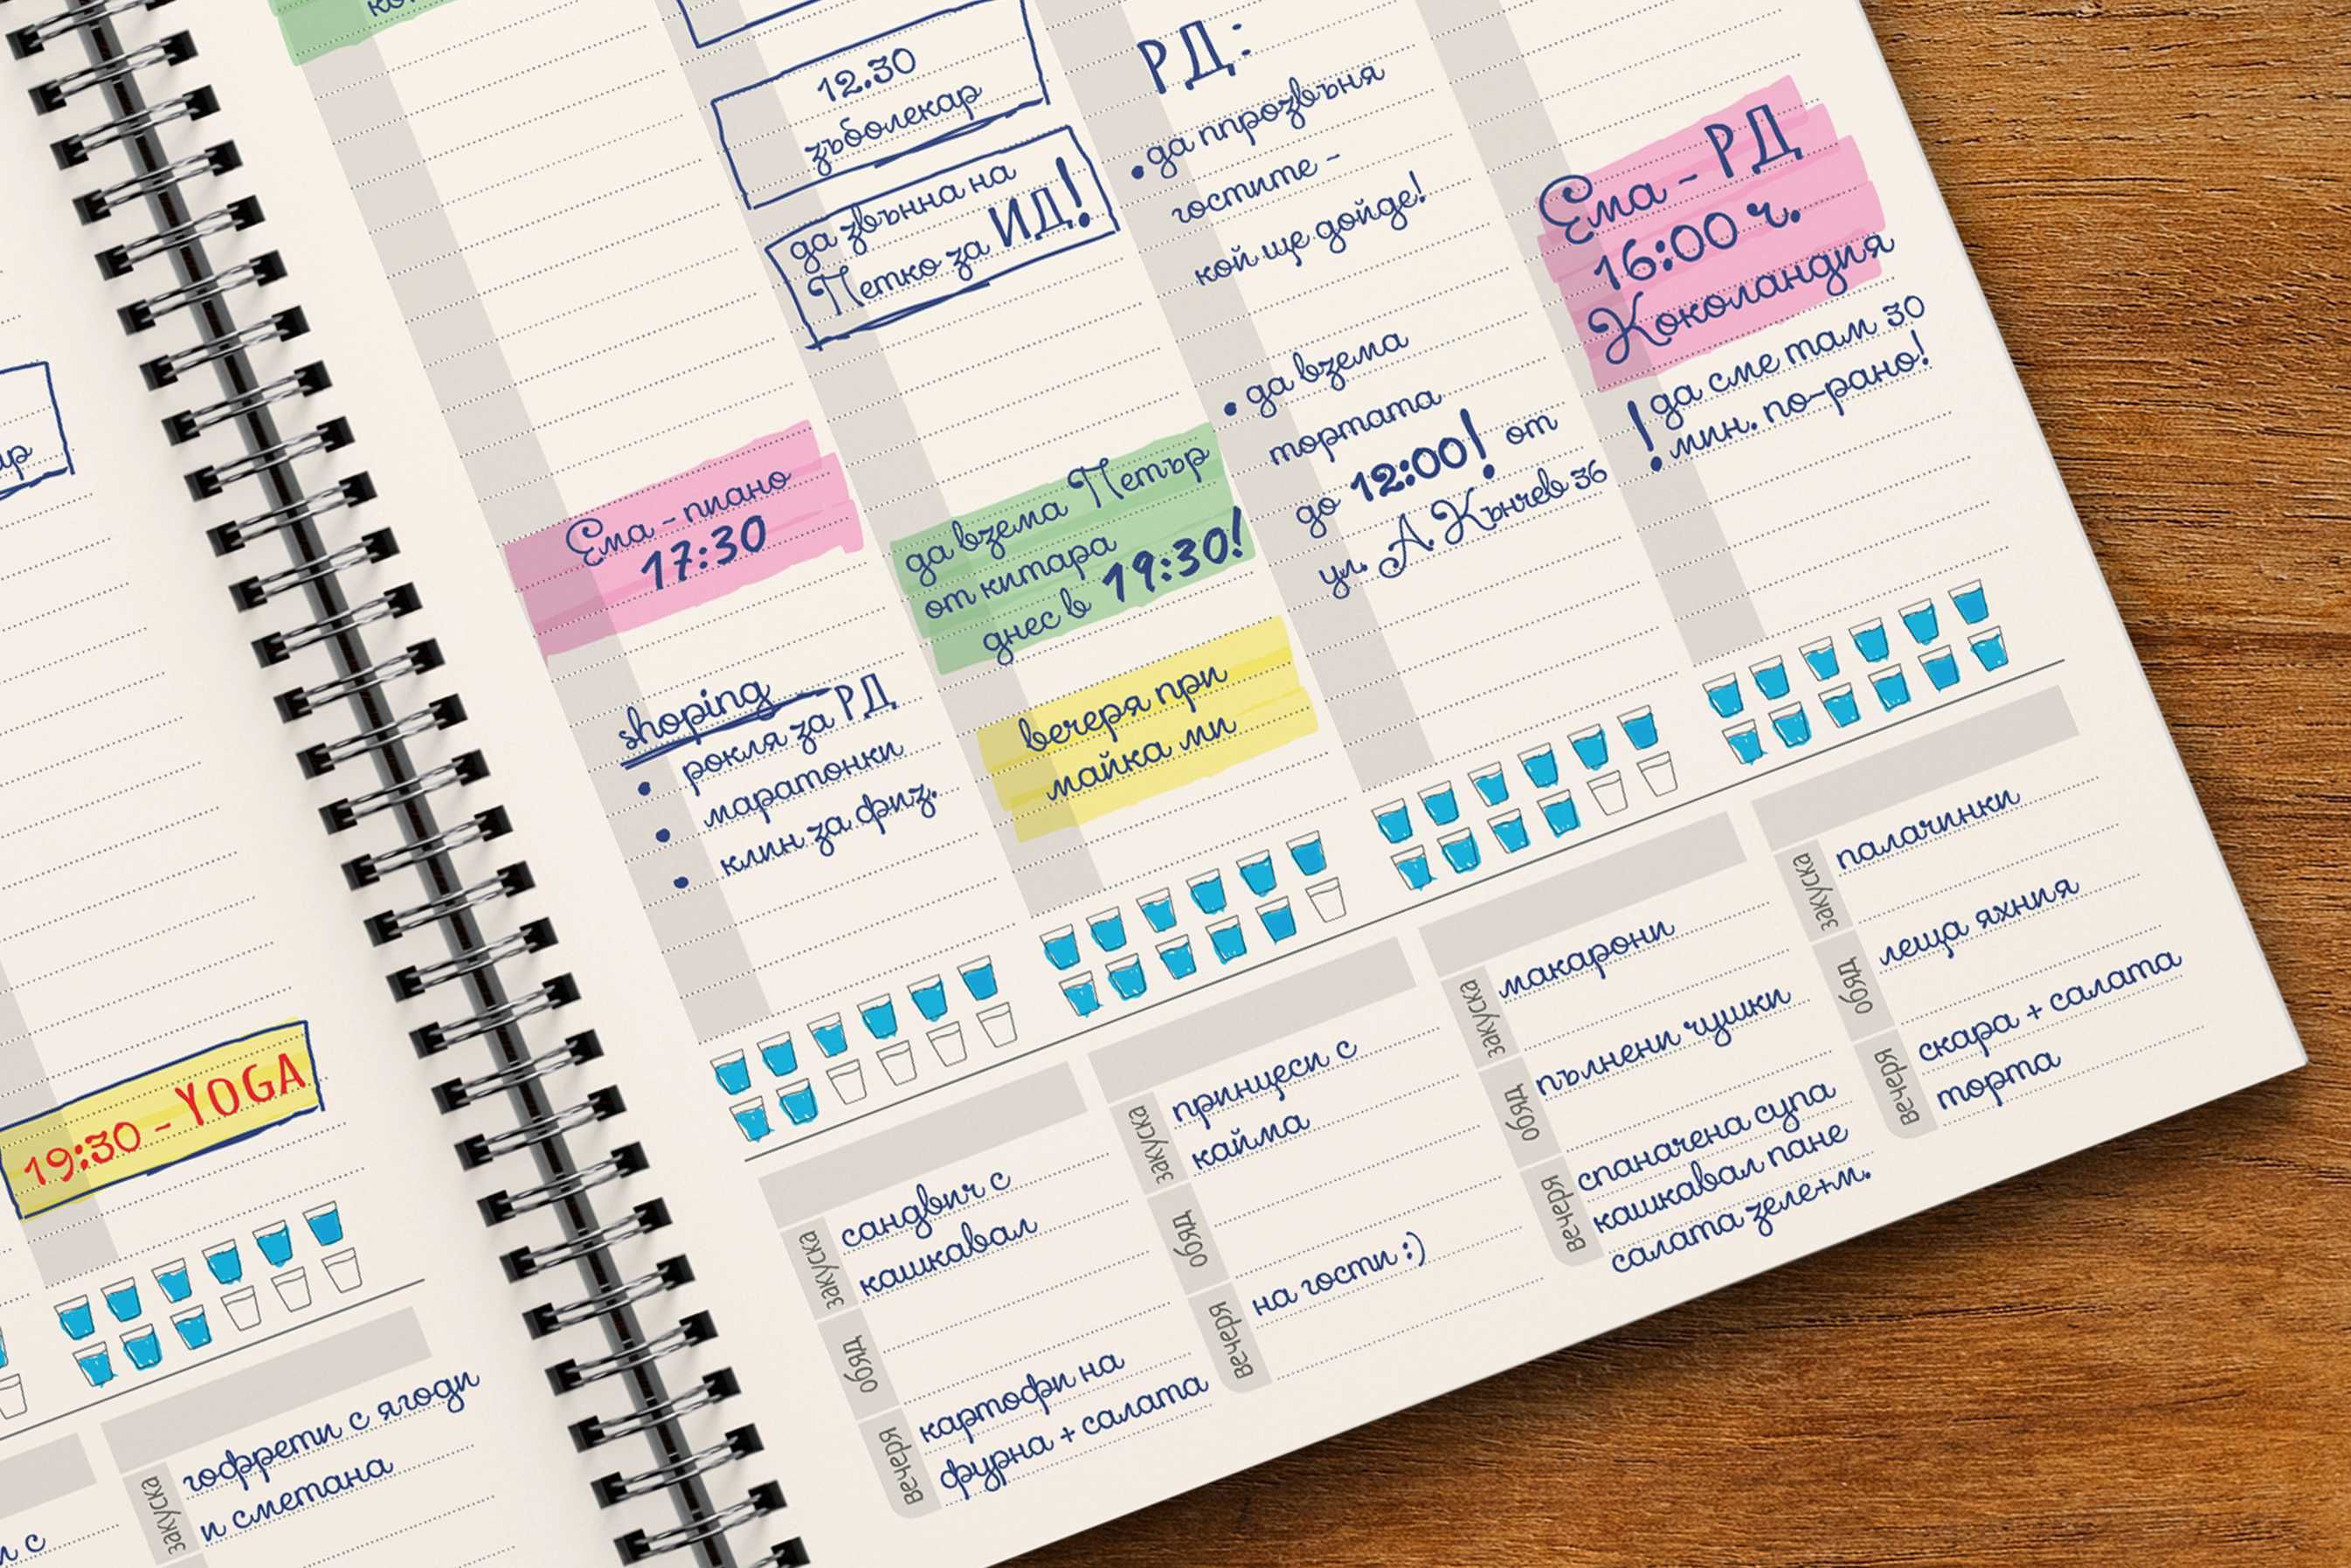 19:30 - YOGA
закуска
гофрети с ягоди
и сметана
Ема - пиано
17:30
shoping - РД
• рокля за РД
• маратонки
• клин за физ.
закуска
сандвич с
кашкавал
обяд
вечеря
картофи на
фурна + салата
12.30
зъболекар
да звънна на
Петко за ИД!
да взема Петър
от китара
днес в 19:30!
вечеря при
майка ми
закуска
принцеси с
кайма
обяд
вечеря
на гости :)
РД:
• да ппрозвъня
гостите -
кой ще дойде!
• да взема
тортата
до 12:00! от
ул. А. Кънчев 36
закуска
макарони
обяд
пълнени чушки
вечеря
спаначена супа
кашкавал пане
салата зеле+м.
Ема - РД
16:00 ч.
Коколандия
! да сме там 30
мин. по-рано!
закуска
палачинки
обяд
леща яхния
вечеря
скара + салата
торта